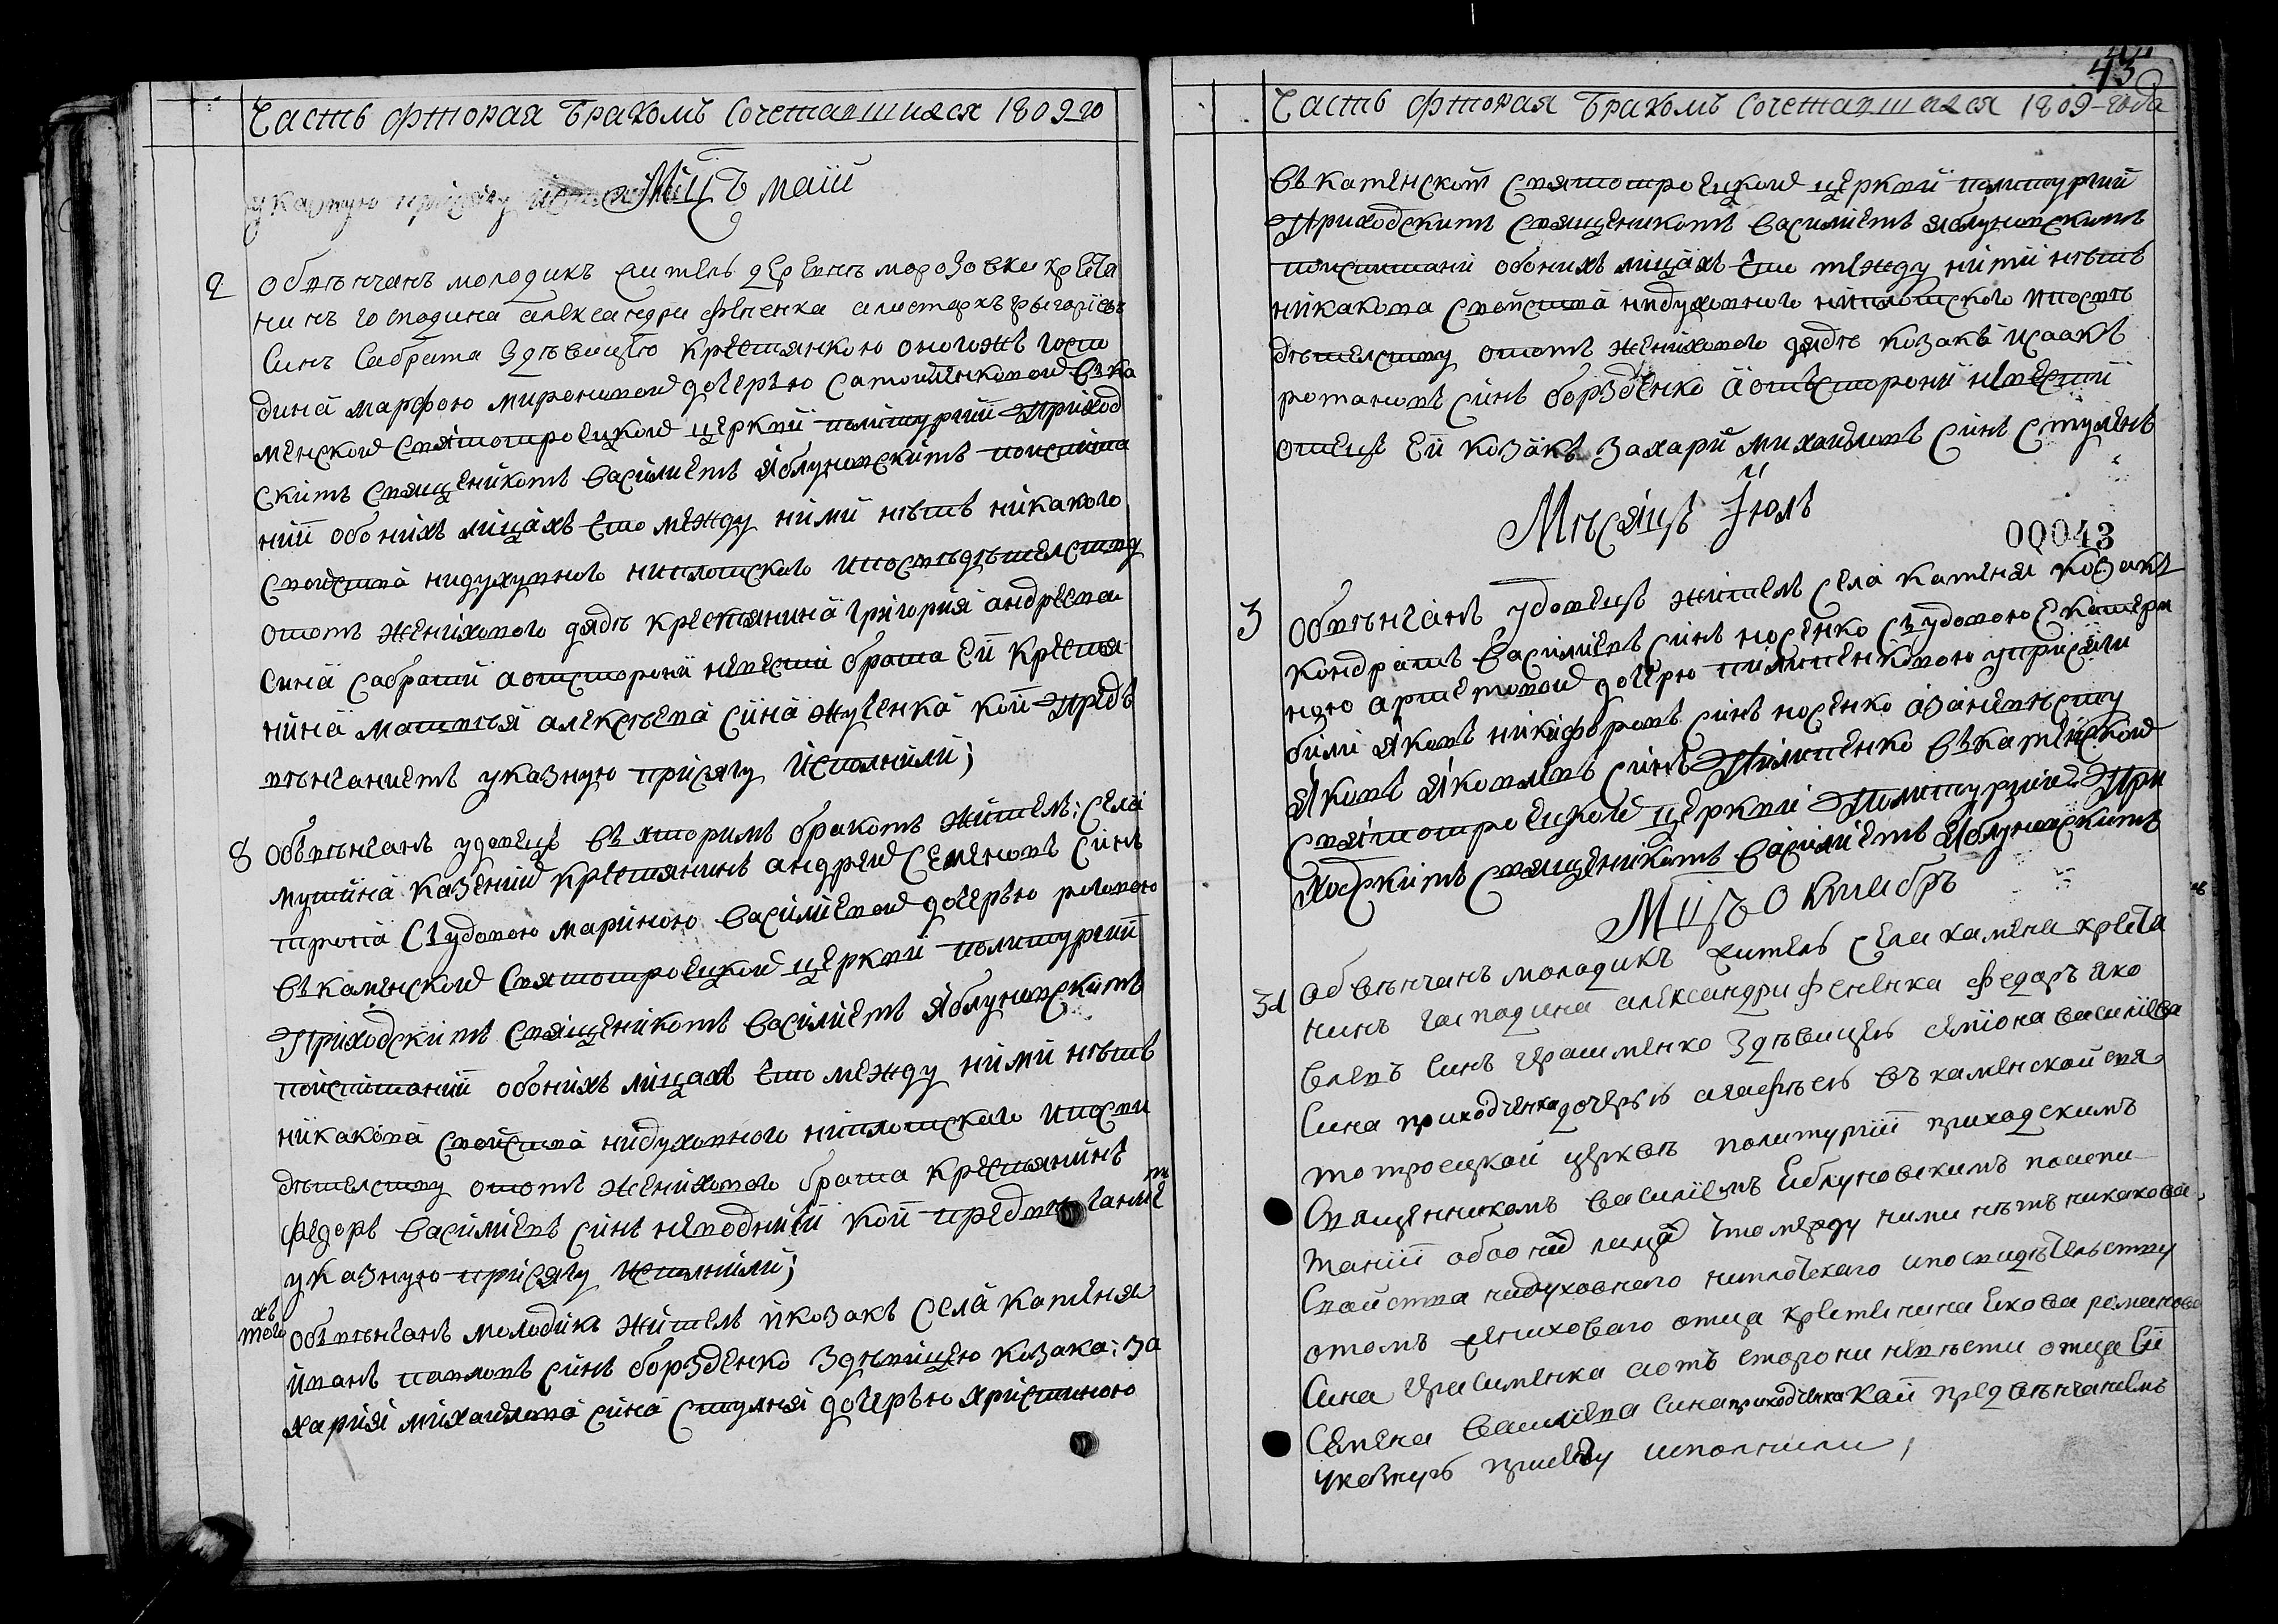 Часть фторая Бракомъ сочетавшихся 1809 го
Мцъ маій
2
обвѣнчанъ молодикъ житель деревнѣ морозовки крестя
нинъ господина александри фененка алистархъ грыгоріевъ
Синъ Сабрата здѣвицею крестянкою оногожъ госпо
дина марфою мироновой дочерью Самойленковой въка
менской святотроецкой церкви политургіи приход
скимъ священикомъ василиемъ яблуновскимъ поиспита
нии обоихъ лицахъ что между ними нѣтъ никакого
свойства нидуховного ниплотского ипосвѣдѣтелству
отомъ женихового дядѣ крестянина григория андреева
сина сабрати аотсторони невести брата ей крестя
нина матвѣя алексѣева сина жученка кои предъ
вѣнчаниемъ указную присягу исполнили;
8
обвѣнчанъ удовецъ въ хторимъ бракомъ житель: села
мутина казений крестянинъ андрей семеновъ синъ
съудовою мариною василиевой дочерью
въкаменской святотроецкой церкви политургии
Приходскимъ священикомъ василиемъ яблуновскимъ
поиспитании обоихъ лицахъ что между ними нѣтъ
никакова свойства нидуховного ниплотского ипосви
дѣтелству отомъ женихового брата крестянинъ
федоръ василиевъ синъ неподний кои предвѣнчание
указную присягу исполнили;
обвѣнчанъ молодикъ житель икозакъ села каменя
иванъ павловъ синъ борзденко здѣвицею козака: за
хария михаилова сина ступня дочерью христиною
43
Часть фторая Бракомъ Сочетавшихся 1809-года
въкаменской святотроецкой церкви политургии
Приходскимъ священикомъ василиемъ яблуновскимъ
поиспитани обоихъ лицахъ что между ними нѣтъ
никакова свойства нидуховного ниплотского ипосвѣ
дѣтелству отомъ женихового дядѣ козакъ исаакъ
романовъ синъ борзденко аотъсторони невести
отецъ ей козакъ захари михаиловъ синъ ступень
Мѣсяцъ Июль
00043
3
обвѣнчанъ удовецъ житель села каменя козакъ
кондратъ василиевъ синъ носенко съудовою екатери
ною артемовой дочерю пилипенковою уприсяги
били яковъ никифоровъ синъ носенко азаневѣсту
яковъ яковлевъ синъ Пилипенко въкаменской
святотроецкой церкви Политургии При
ходскимъ священикомъ василиемъ яблуновскимъ
Мцъ октиабръ
обвѣнчанъ молодикъ житель села каменя крестя
нинъ господина александри фененка федоръ яко
влевъ синъ Герасименко здѣвицею семіона василіева
Сина приходченка дочерью агафѣею въ каменской свя
тотроецкой церквѣ политургіи приходскимъ
Священникомъ василіемъ Еблуновскимъ поиспи
таніи обоонихъ лицахъ что между ними нѣтъ никакова
Свойства нидуховнаго ниплотскаго ипосвидѣтельству
отомъ женихового отца крестенина Екова романова
Сина Герасименка аотъ сторони невѣсти отца Ей
Семена Василіева Сина приходченка кои предвѣнчаніемъ
указную присягу исполнили,